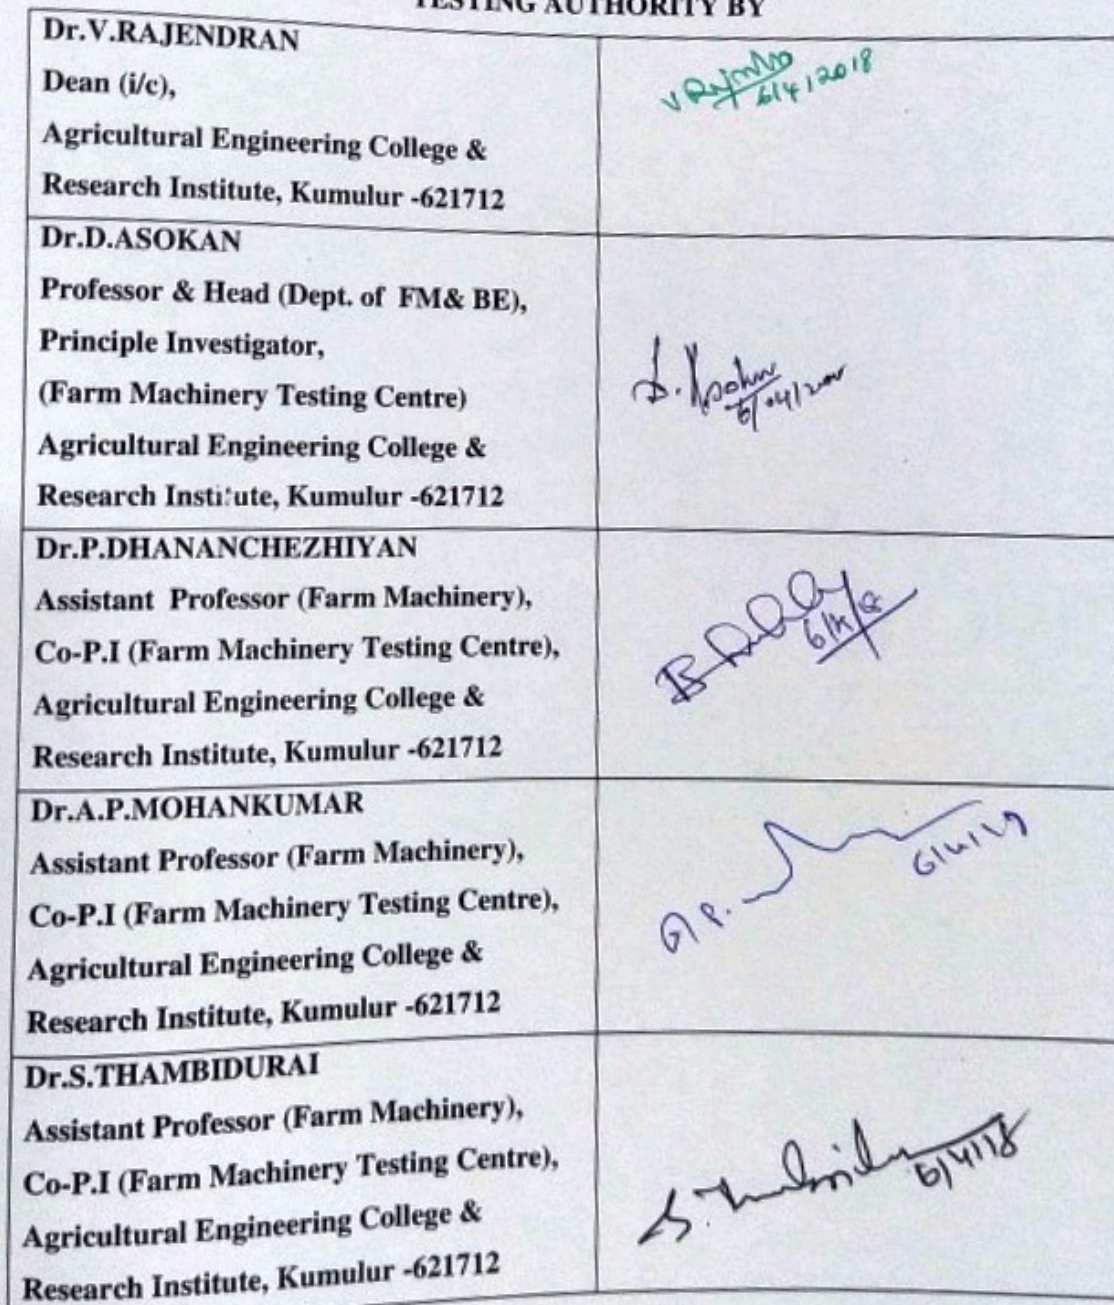 TESTING AUTHORITY BY
Dr.V.RAJENDRAN
Dean (i/c),
Agricultural Engineering College &
Research Institute, Kumulur -621712
6/4/2018
Dr.D.ASOKAN
Professor & Head (Dept. of FM& BE),
Principle Investigator,
(Farm Machinery Testing Centre)
Agricultural Engineering College &
Research Institute, Kumulur -621712
Dr.P.DHANANCHEZHIYAN
Assistant Professor (Farm Machinery),
Co-P.I (Farm Machinery Testing Centre),
Agricultural Engineering College &
Research Institute, Kumulur -621712
6/4/18
Dr.A.P.MOHANKUMAR
Assistant Professor (Farm Machinery),
Co-P.I (Farm Machinery Testing Centre),
Agricultural Engineering College &
Research Institute, Kumulur -621712
Dr.S.THAMBIDURAI
Assistant Professor (Farm Machinery),
Co-P.I (Farm Machinery Testing Centre),
Agricultural Engineering College &
Research Institute, Kumulur -621712
6/4/18